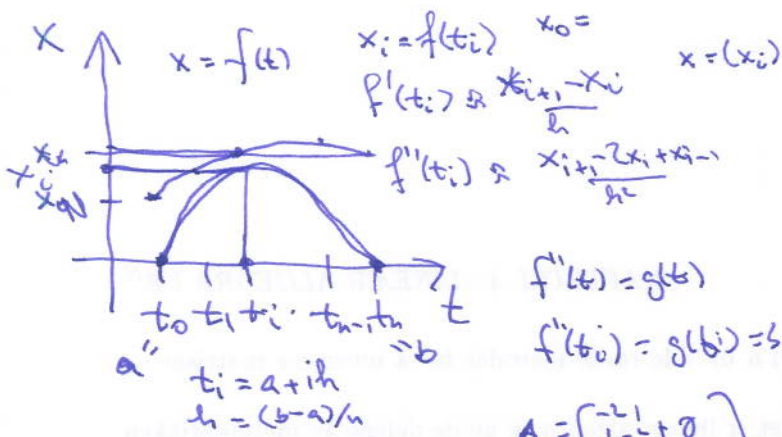 x
x = f(t)
x_i = f(t_i) x_0 =
x = (x_i)
f'(t_i) ≈ (x_{i+1} - x_i)/h
f''(t_i) ≈ (x_{i+1} - 2x_i + x_{i-1})/h²
x_i
t_0 t_1 t_i . t_{n-1} t_n t
a" "b
t_i = a + ih
h = (b-a)/n
f''(t) = g(t)
f''(t_i) = g(t_i) =
A =